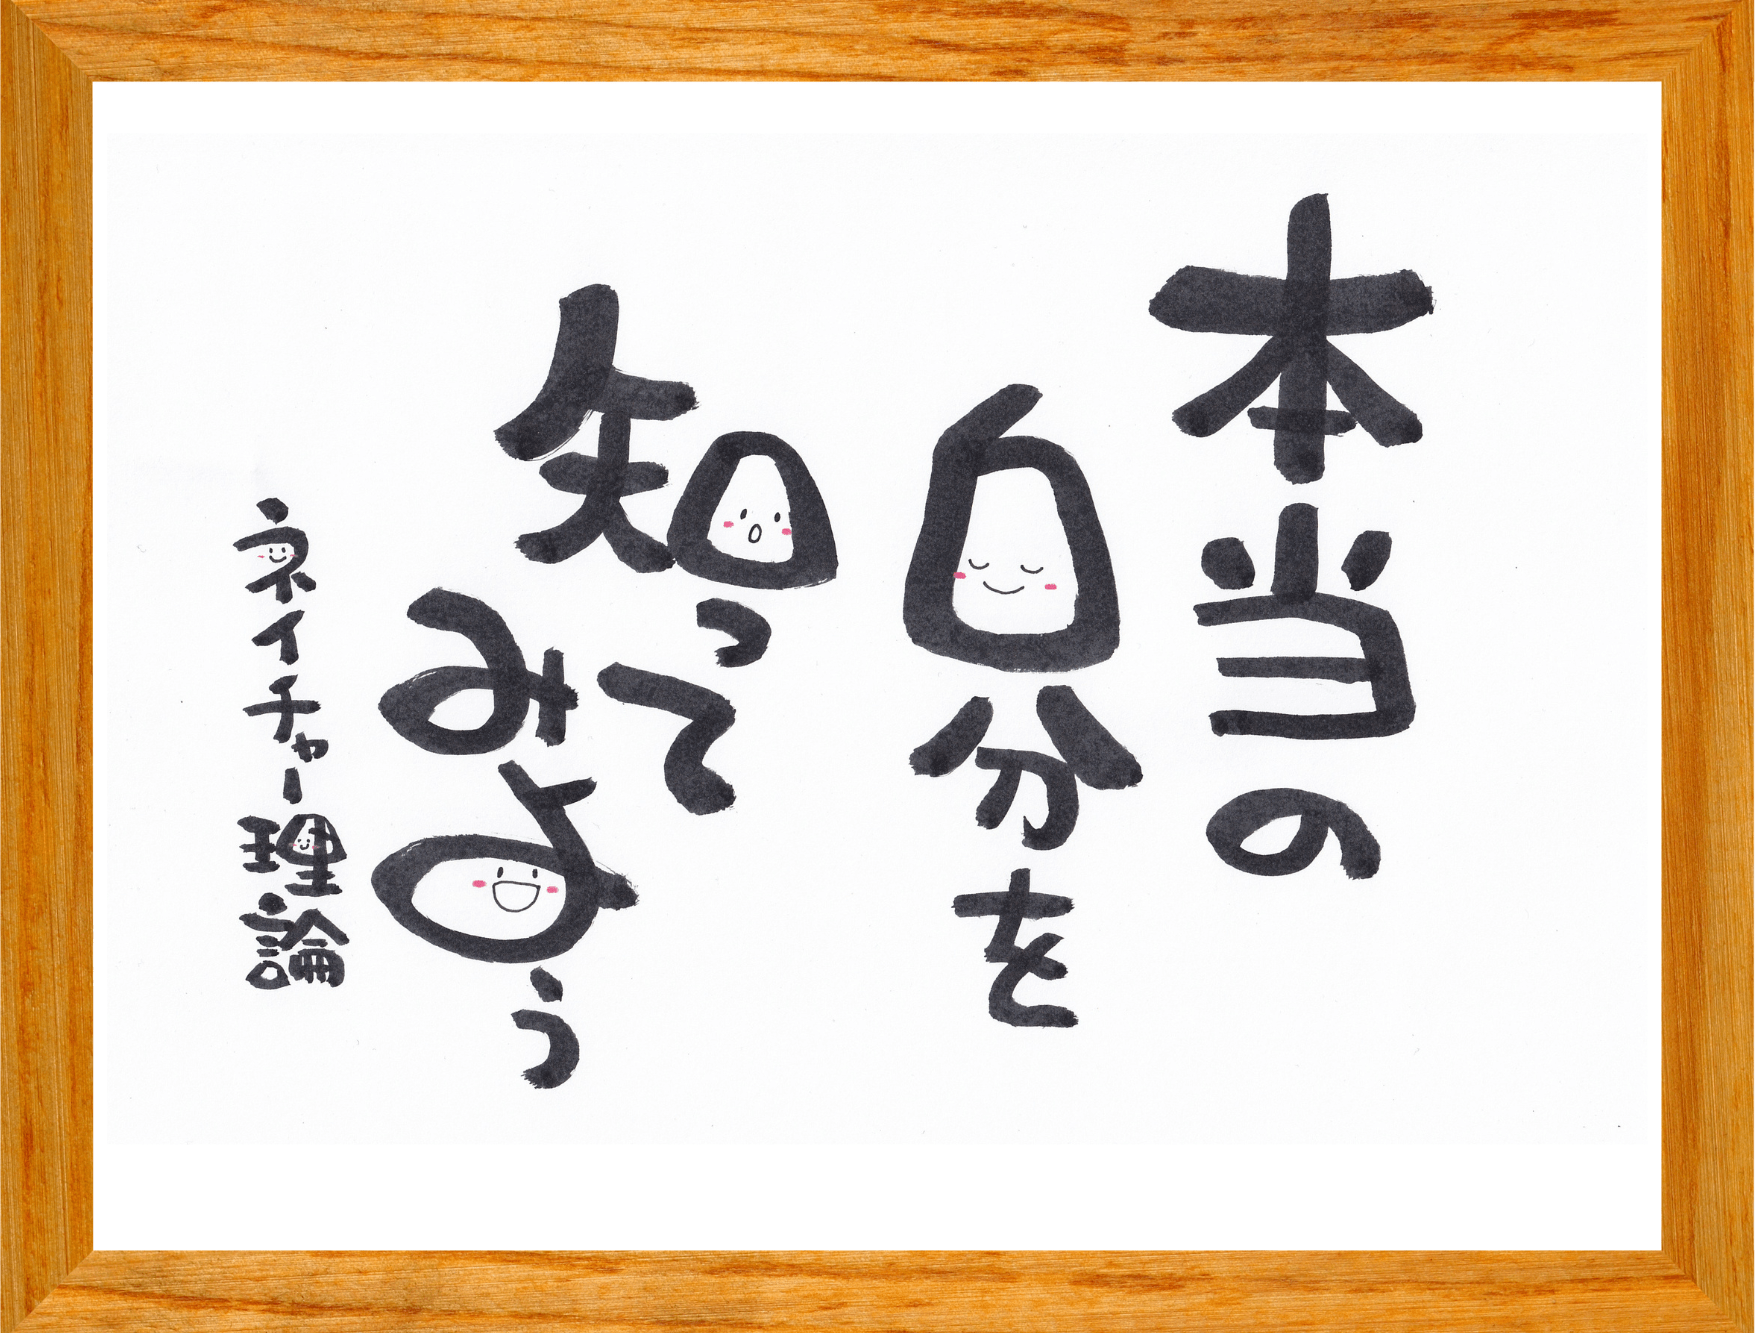 本当の
自分を
知って
みよう
ネイチャー理論